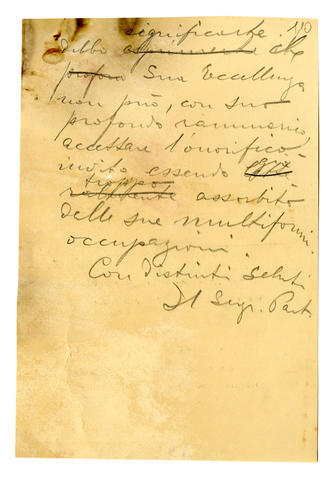 significarle 110
debbo esprimerle che
Sua Eccellenza
non può, con suo
profondo rammarico,
accettare l'onorifico
invito essendo
troppo
assorbito
delle sue multiformi
occupazioni.
Con distinti saluti
Il Segr. Part.